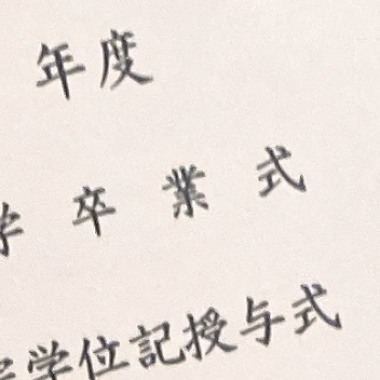 年度
学卒業式
学学位記授与式